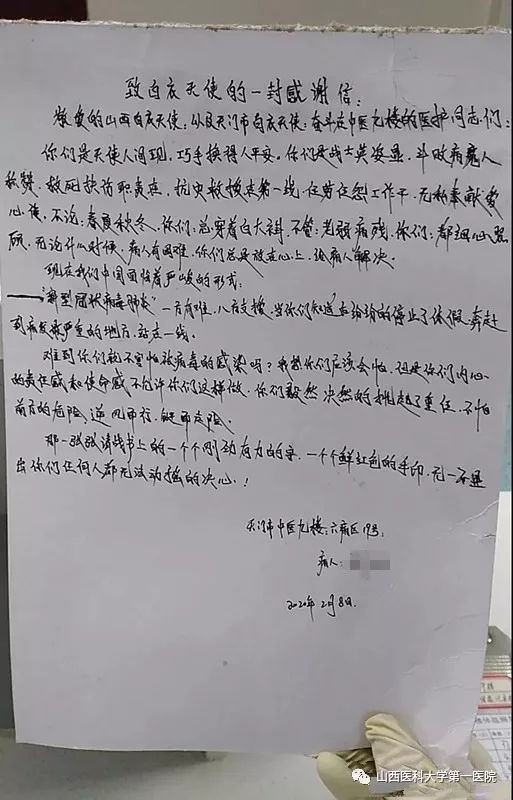 致白衣天使的一封感谢信:
敬爱的山西白衣天使:以及天门市白衣天使:奋斗在中医九楼的医护同志们:
你们是天使人间现,巧手换得人平安。你们是战士英姿显,斗败病魔人
称赞,救死扶伤职责点,抗灾救援在第一线,任劳任怨工作干,无私奉献爱
心使,不论:春夏秋冬,你们:总穿着白大褂,不管:老弱病残,你们:都细心照
顾,无论什么时候,病人有困难,你们总是放在心上,该病人解决。
现在我们中国面临着严峻的形式:
——"新型冠状病毒肺炎"一方有难,八方支援,当你们知道后纷纷的停止了休假,奔赴
到病发最严重的地方,站在一线。
难到你们就不害怕被病毒的感染吗?我想你们应该会怕,但是你们内心
的责任感和使命感不允许你们这样做,你们毅然决然的挑起了重任,不怕
前方的危险,逆风而行,
那一张张请战书上的一个个刚劲有力的字,一个个鲜红色的手印,无一不显
出你们任何人都无法动摇的决心.!
天门市中医九楼:六病区19号.
病人:
2020年2月8日.
山西医科大学第一医院